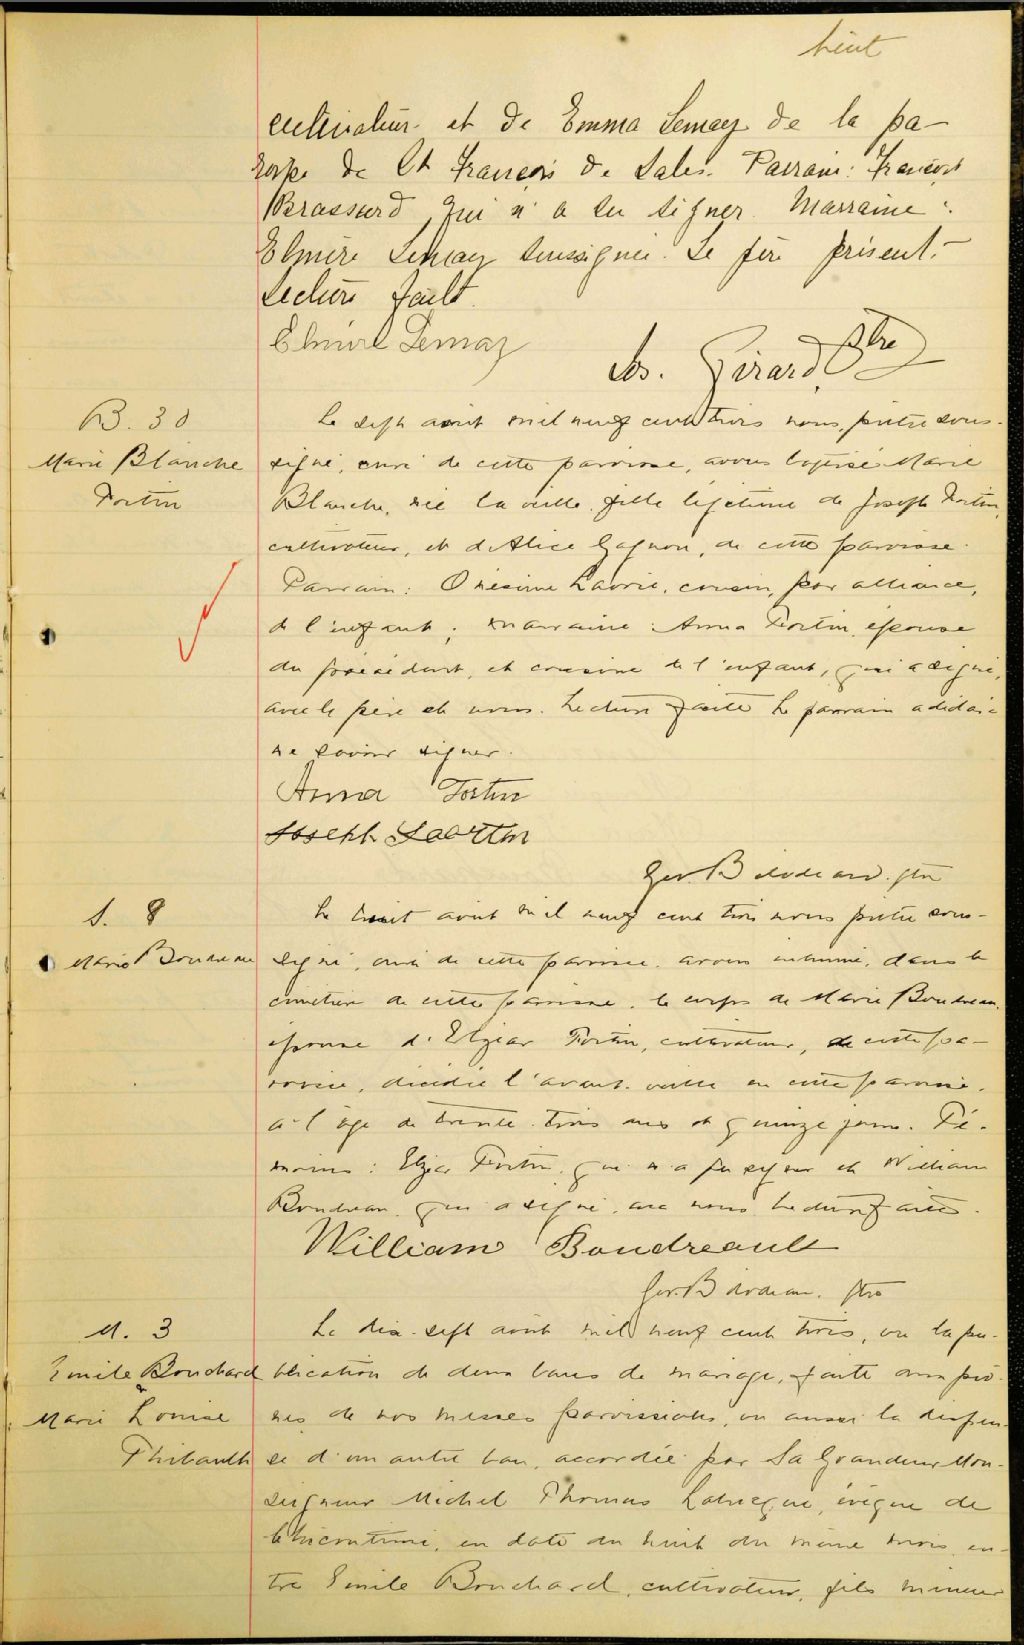 huit
cultivateur et de Emma Lemay de la pa-
roisse de St François de Sales. Parrain: François
Brassard qui n'a su signer. Marraine:
Elmire Lemay soussignée. Le père présent.
Lecture faite.
Elmire Lemay
Jos. Girard, Ptre
B. 30
Marie Blanche
Fortin
Le sept août mil neuf cent trois nous, prêtre sous-
signé, curé de cette paroisse, avons baptisé Marie
Blanche, née la veille, fille légitime de Joseph Fortin,
cultivateur, et d'Alice Gagnon, de cette paroisse.
Parrain: Onésime Lavoie, cousin, par alliance,
de l'enfant; marraine: Anna Fortin, épouse
du précédent, et cousine de l'enfant, qui a signé,
avec le père et nous. Lecture faite. Le parrain a déclaré
ne savoir signer.
Anna Fortin
Joseph
Geo. Bilodeau. ptre
S. 8
Marie Boudreau
Le huit août mil neuf cent trois nous prêtre sous-
signé, curé de cette paroisse, avons inhumé, dans le
cimetière de cette paroisse, le corps de Marie Boudreau,
épouse d'Elzéar Fortin, cultivateur, de cette pa-
roisse, décédée l'avant-veille en cette paroisse,
à l'âge de trente-trois ans et quinze jours. Té-
moins: Elzéar Fortin, qui n'a pu signer et William
Boudreau, qui a signé, avec nous. Lecture faite.
William Boudreault
Geo. Bilodeau. ptre
M. 3
Emile Bouchard
&
Marie Louise
Thibault
Le dix-sept août mil neuf cent trois, vu la pu-
blication de deux bans de mariage, faite aux prô-
nes de nos messes paroissiales, vu aussi la dispen-
se d'un autre ban, accordée par Sa Grandeur Mon-
seigneur Michel Thomas Labrecque, évêque de
Chicoutimi, en date du huit du même mois, en-
tre Emile Bouchard, cultivateur, fils mineur